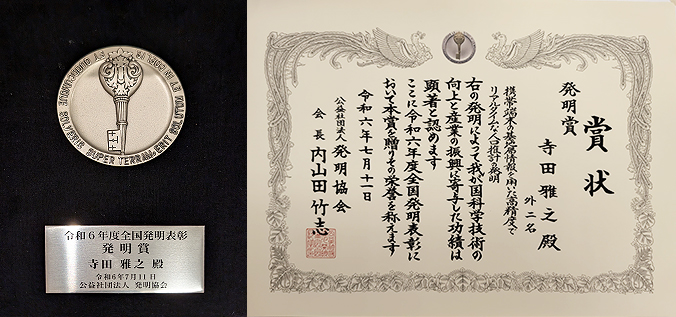 SOLVERIS SUPER TERRAM
令和6年度全国発明表彰
発明賞
寺田 雅之 殿
令和6年7月11日
公益社団法人 発明協会
賞状
発明賞
寺田雅之殿
外二名
携帯端末の基地局情報を用いた高精度で
リアルタイムな人口推計の発明
右の発明によって我が国科学技術の
向上と産業の振興に寄与した功績は
顕著と認めます
ここに令和六年度全国発明表彰に
おいて本賞を贈りその栄誉を称えます
令和六年七月十一日
公益社団法人 発明協会
会長 内山田竹志